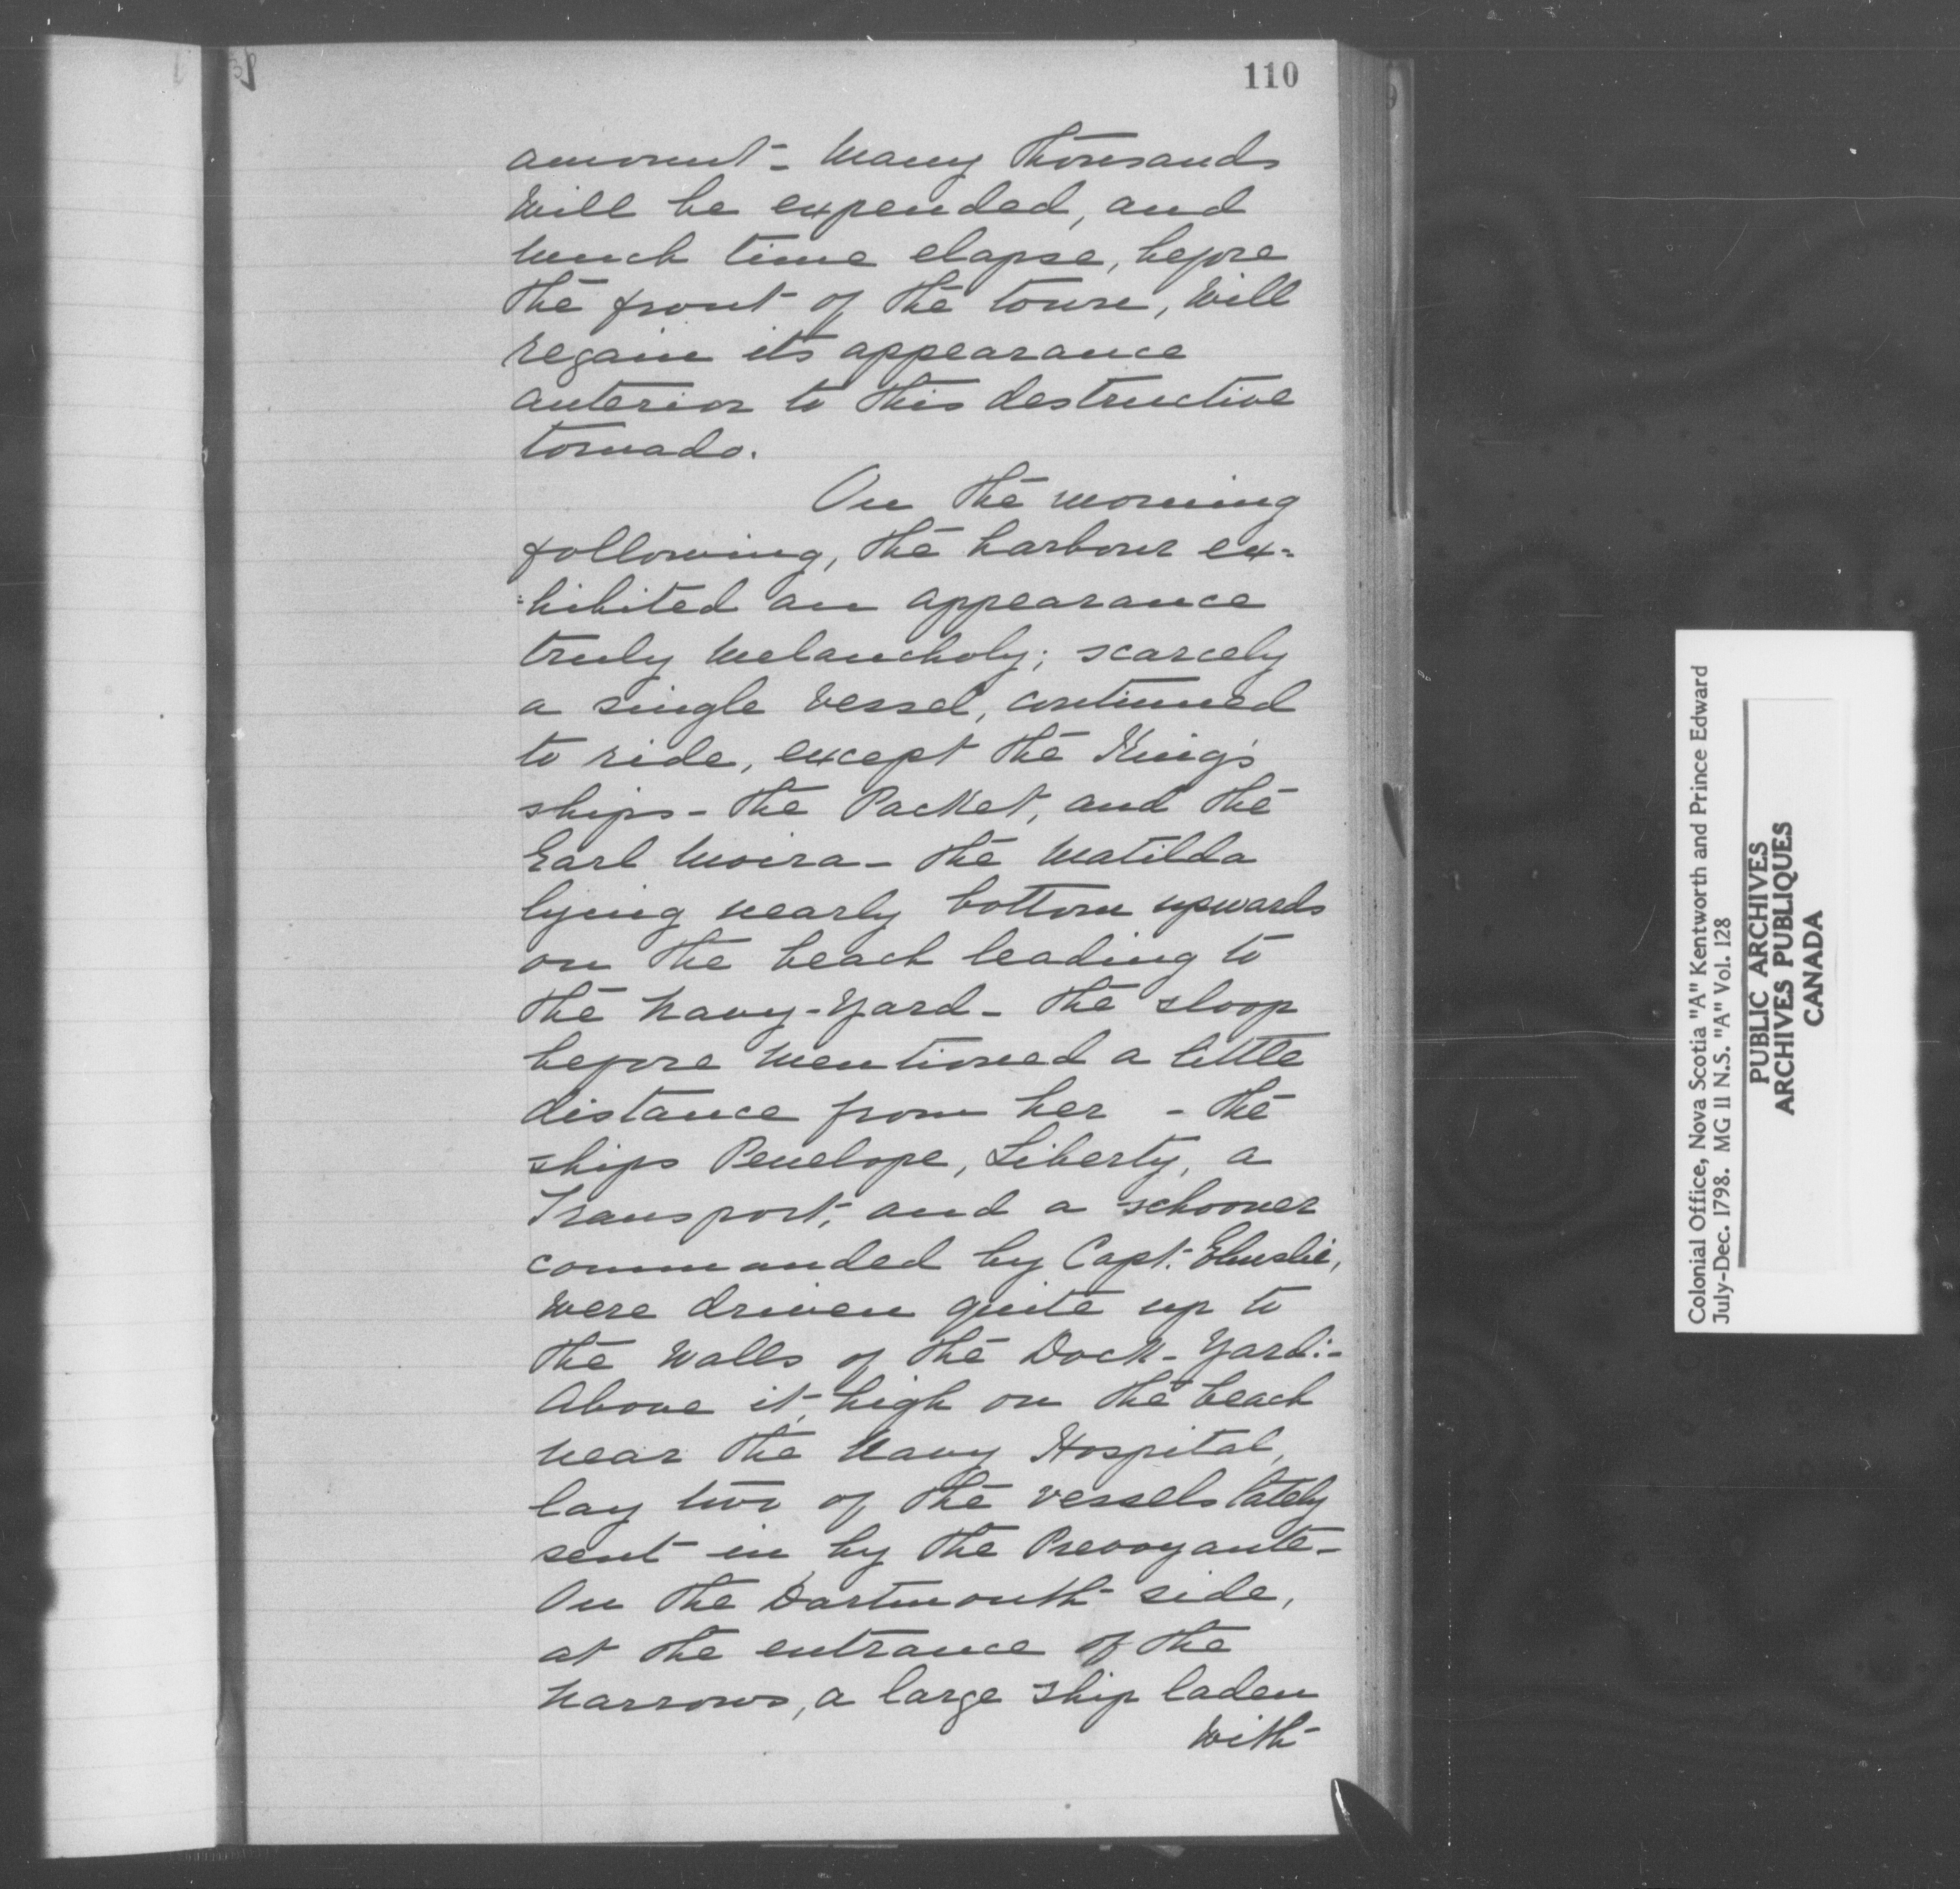 110
amount - Many thousands
will be expended, and
much time elapse, before
the front of the town, will
regain its appearance
anterior to this destructive
tornado.
On the morning
following, the harbour ex=
=hibited an appearance
truly melancholy; scarcely
a single vessel, continued
to ride, except the King's
ships - the Packet, and the
Earl Moira - the Matilda
lying nearly bottom upwards
on the beach leading to
the Navy-Yard - the sloop
before mentioned a little
distance from her - the
ships Penelope, Liberty, a
Transport, and a schooner
commanded by Capt. Elmslie,
were driven quite up to
the walls of the Dock-Yard:-
Above it, high on the beach
near the Navy Hospital,
lay two of the vessels lately
sent in by the Prevoyante -
On the Dartmouth side,
at the entrance of the
Narrows, a large ship laden
with
Colonial Office, Nova Scotia "A" Kentworth and Prince Edward
July-Dec. 1798. MG 11 N.S. "A" Vol. 128
PUBLIC ARCHIVES
ARCHIVES PUBLIQUES
CANADA